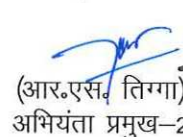 (आर.एस. तिग्गा)
अभियंता प्रमुख–2